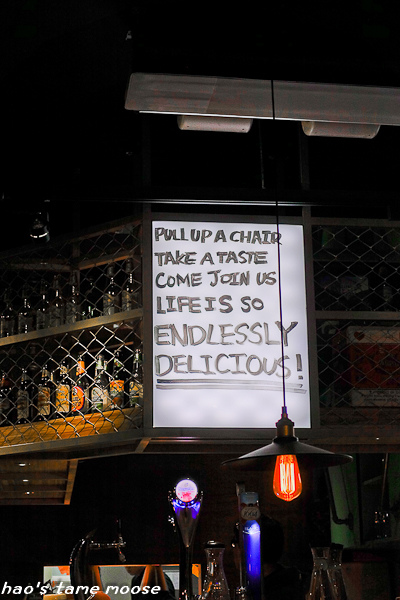 PULL UP A CHAIR
TAKE A TASTE
COME JOIN US
LIFE IS SO
ENDLESSLY
DELICIOUS!
hao's tame moose